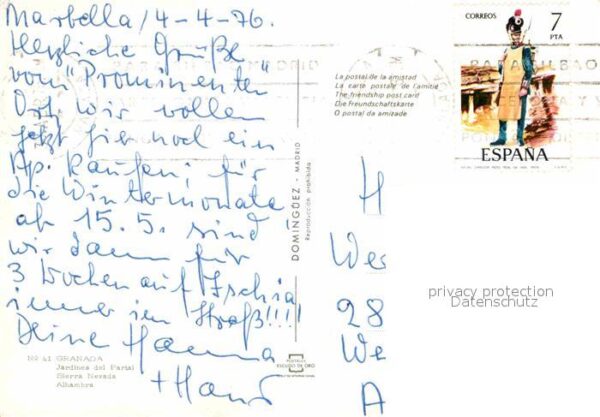 Marbella / 4-4-76.
Herzliche Grüße
vom "Prominenten"
Ort. Wir wollen
jetzt hier noch ein
Ap. kaufen! für
die Wintermonate
ab 15.5. sind
wir dann für
3 Wochen auf Ischia
immer im Streß!!!!
Deine Hanna
+ Hans
Nº 41 GRANADA
Jardines del Partal
Sierra Nevada
Alhambra
DOMINGUEZ - MADRID
Reproducción prohibida
POSTALES
ESCUDO DE ORO
La postal de la amistad
La carte postale de l'amitié
The friendship post card
Die Freundschaftskarte
O postal da amizade
CORREOS 7
PTA
ESPAÑA
H
We
28
We
A
privacy protection
Datenschutz